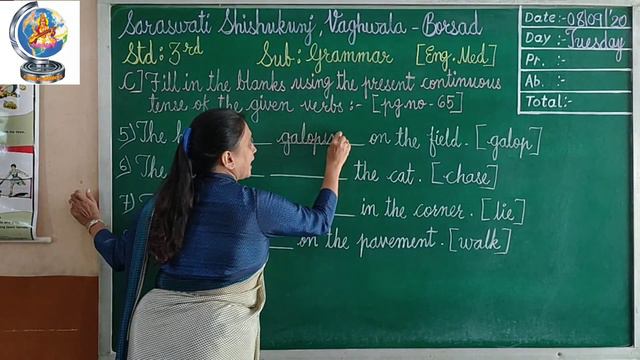 Saraswati Shishukunj, Vaghwala - Borsad
Std : 3rd Sub : Grammar [Eng. Med]
C] Fill in the blanks using the present continuous
tense of the given verbs :- [pg.no - 65]
5) The galopin on the field. [galop]
6) The the cat. [chase]
7) in the corner. [lie]
on the pavement. [walk]
Date :- 08/09/'20
Day :- Tuesday
Pr. :-
Ab. :-
Total :-